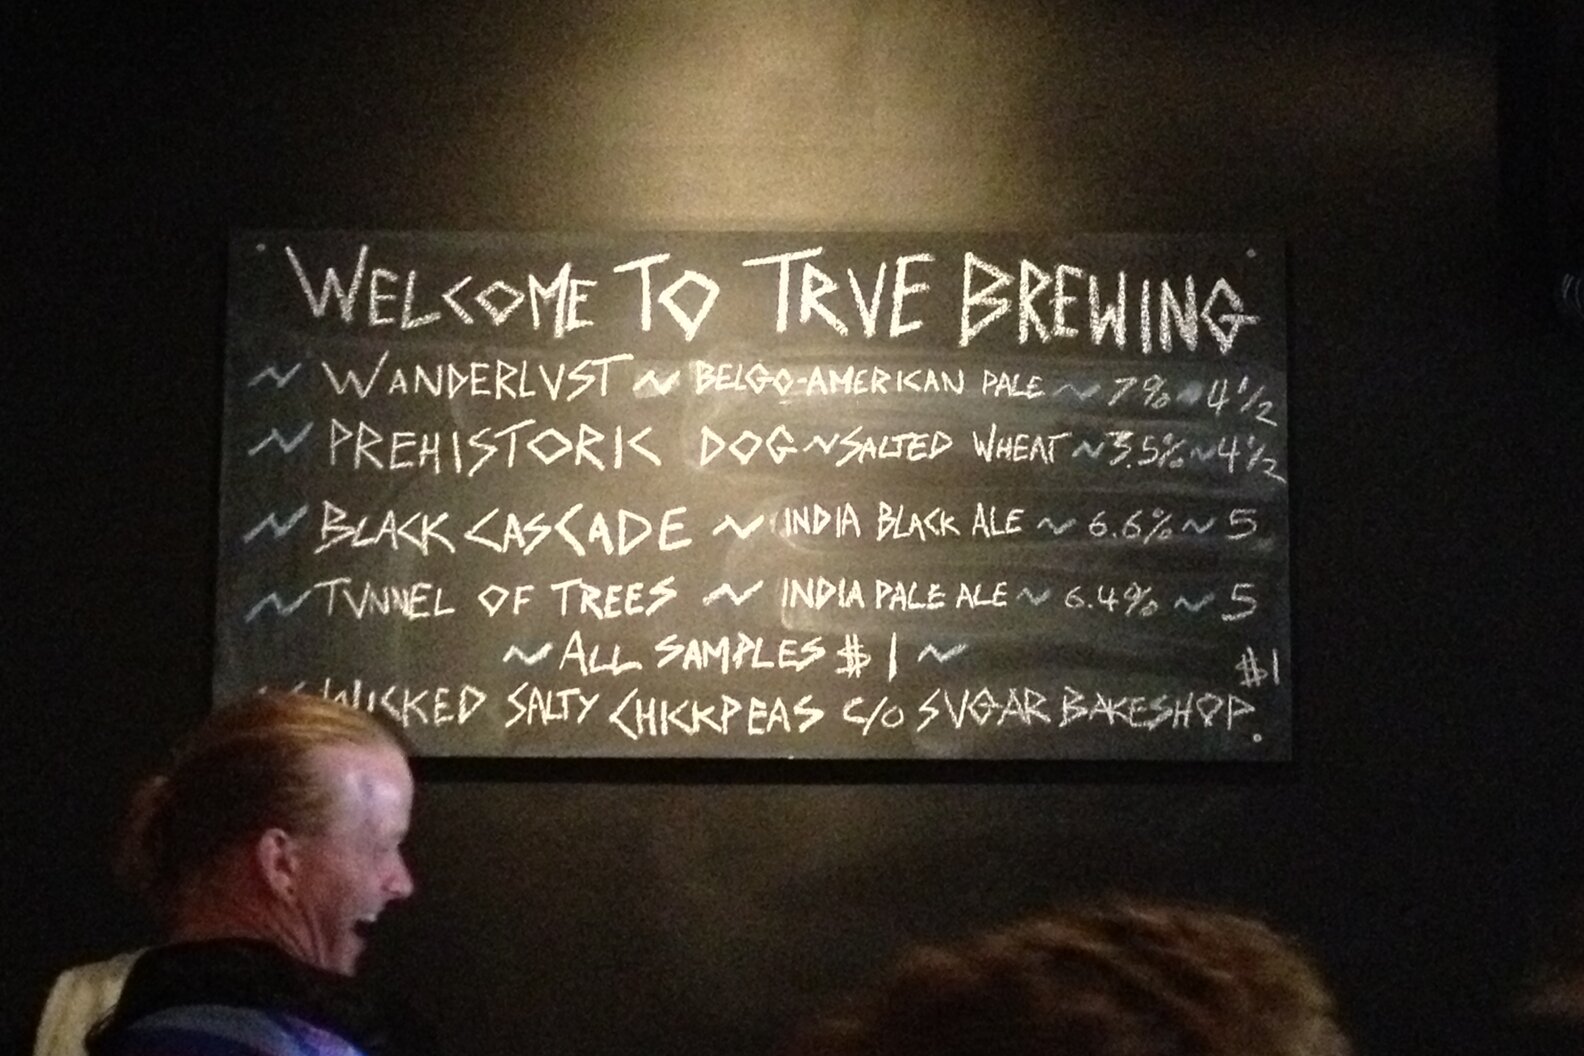 WELCOME TO TRVE BREWING
~ WANDERLVST ~ BELGO-AMERICAN PALE ~ 7% ~ 4 1/2
~ PREHISTORIC DOG ~ SALTED WHEAT ~ 3.5% ~ 4 1/2
~ BLACK CASCADE ~ INDIA BLACK ALE ~ 6.6% ~ 5
~ TVNNEL OF TREES ~ INDIA PALE ALE ~ 6.4% ~ 5
~ ALL SAMPLES $1 ~
$1
WICKED SALTY CHICKPEAS C/O SVGAR BAKESHOP